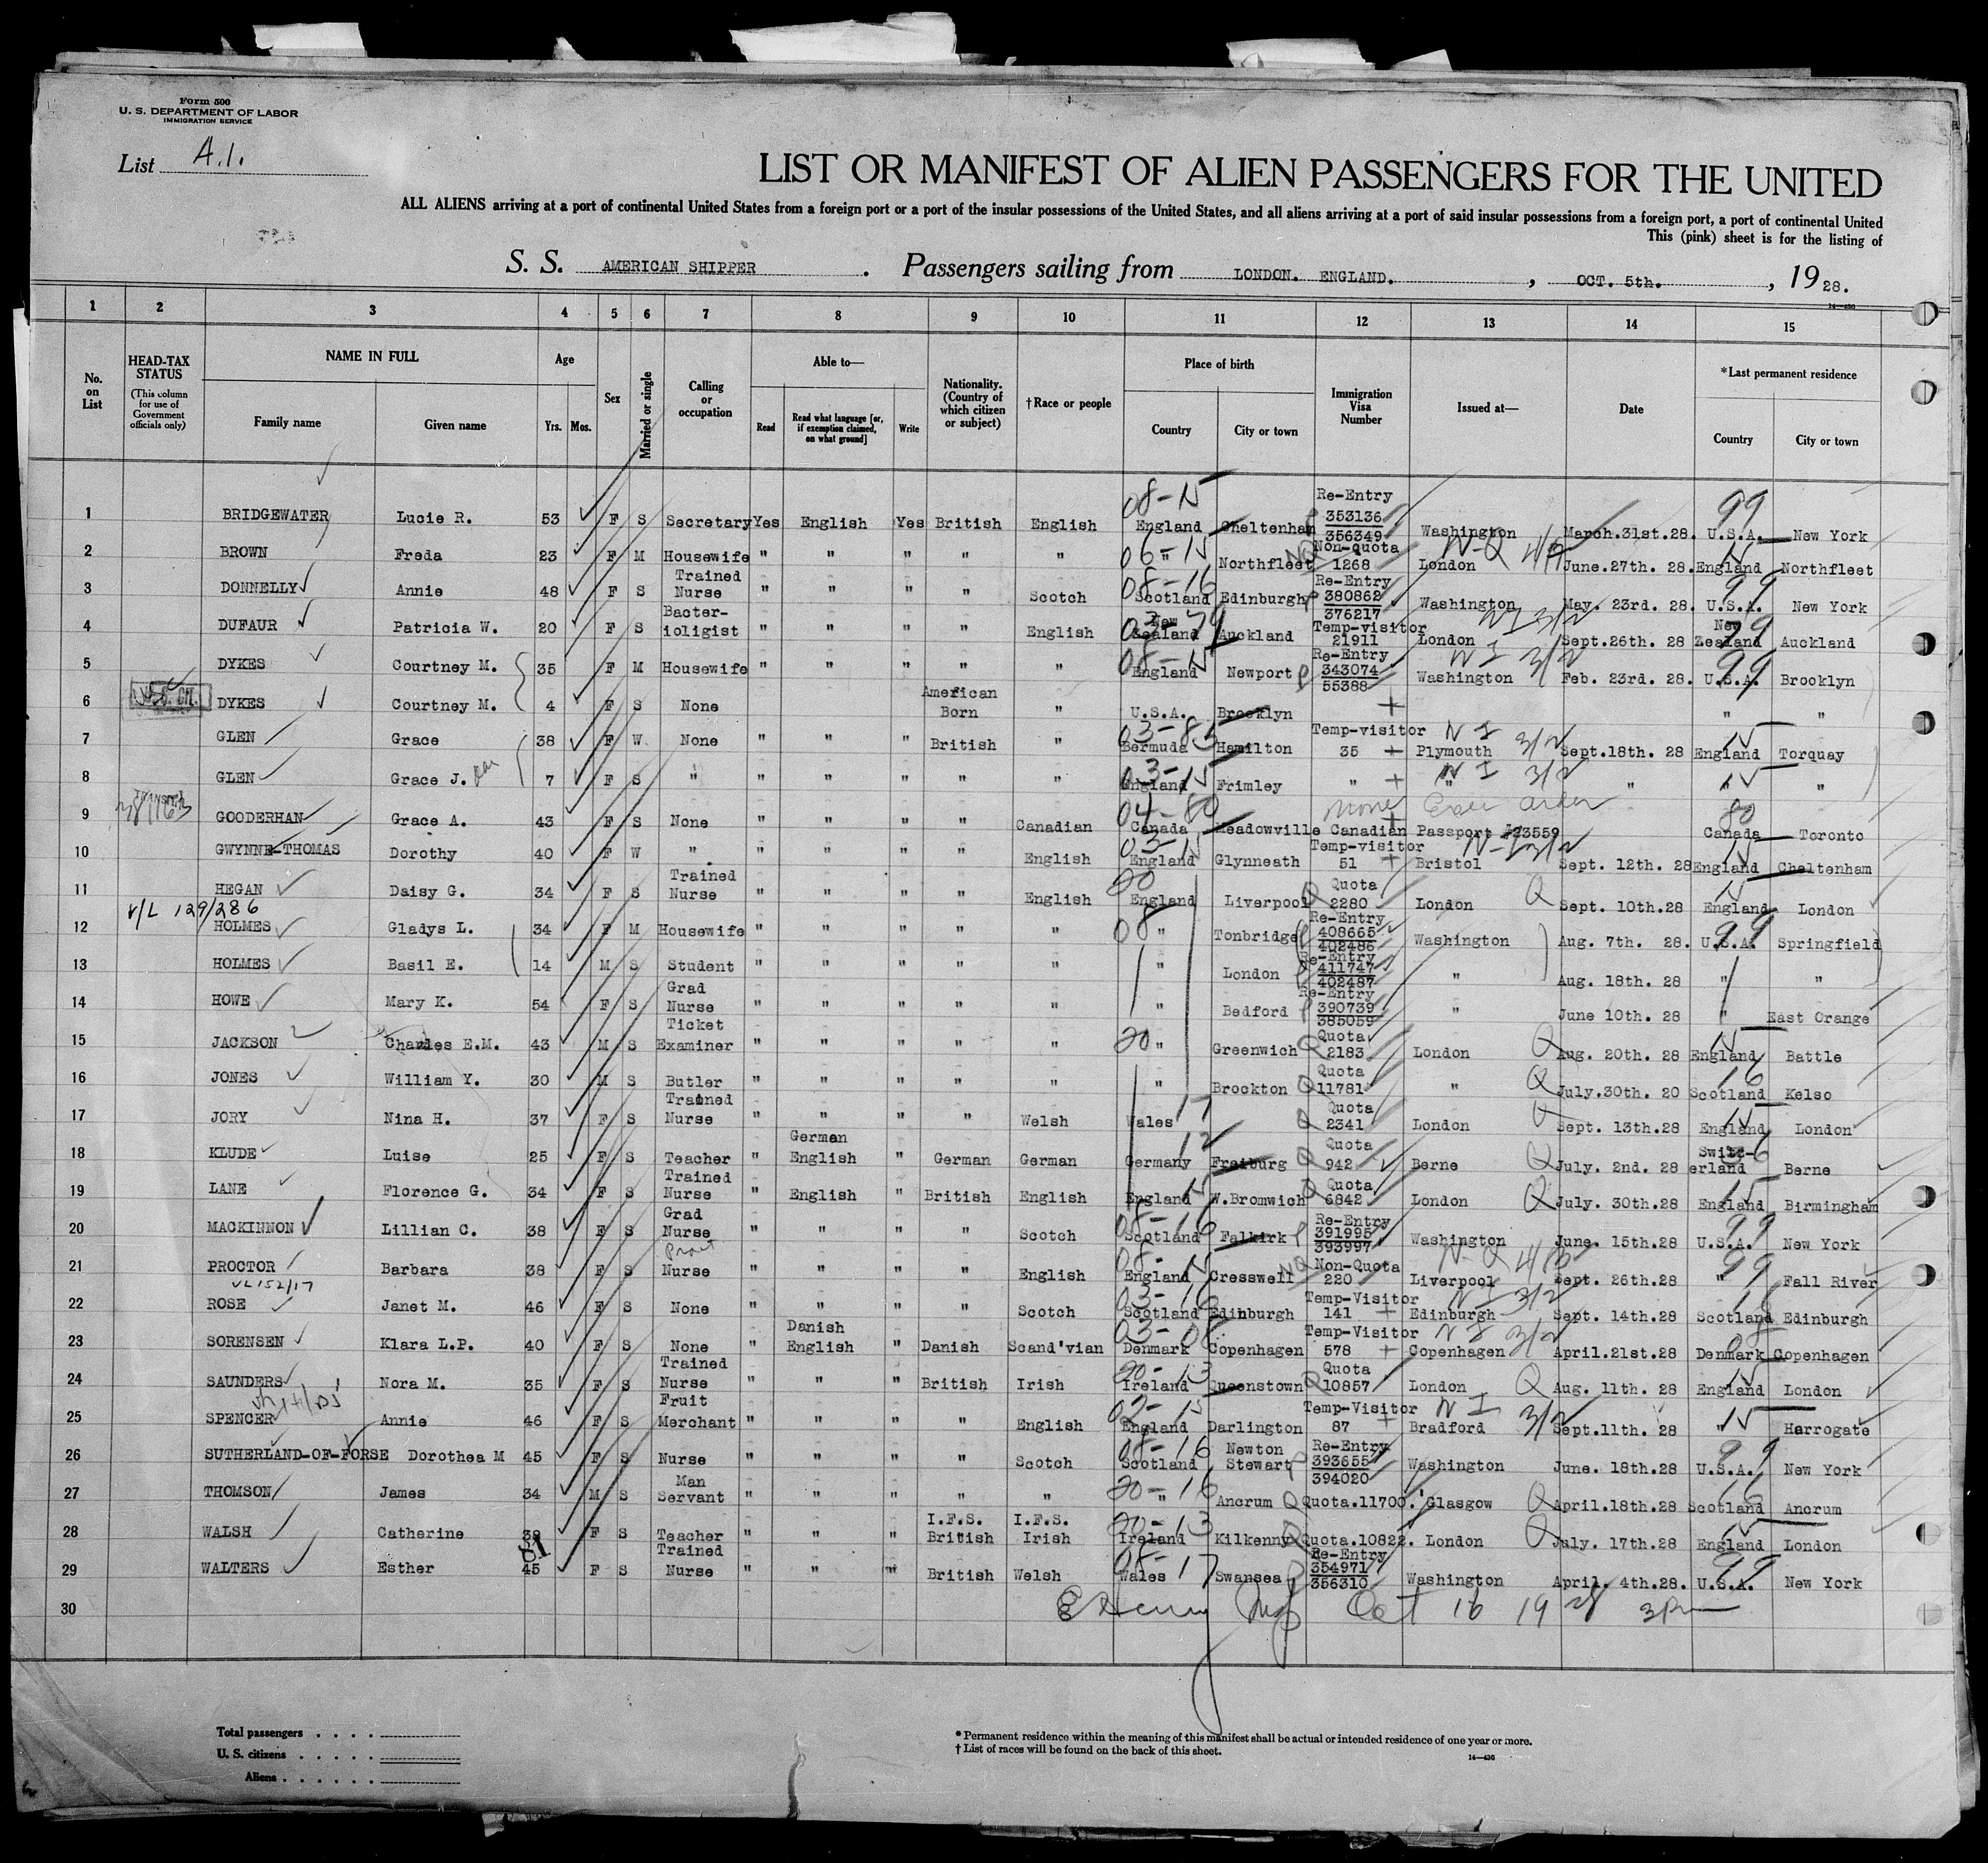 Form 500
U. S. DEPARTMENT OF LABOR
IMMIGRATION SERVICE
List A.1.
LIST OR MANIFEST OF ALIEN PASSENGERS FOR THE UNITED
ALL ALIENS arriving at a port of continental United States from a foreign port or a port of the insular possessions of the United States, and all aliens arriving at a port of said insular possessions from a foreign port, a port of continental United
This (pink) sheet is for the listing of
S. S. AMERICAN SHIPPER . Passengers sailing from LONDON. ENGLAND. , OCT. 5th. , 19 28.
14—430
1 2 3 4 5 6 7 8 9 10 11 12 13 14 15
No. on List
HEAD-TAX STATUS (This column for use of Government officials only)
NAME IN FULL Family name Given name
Age Yrs. Mos.
Sex
Married or single
Calling or occupation
Able to— Read Read what language [or, if exemption claimed, on what ground] Write
Nationality. (Country of which citizen or subject)
†Race or people
Place of birth Country City or town
Immigration Visa Number
Issued at—
Date
*Last permanent residence Country City or town
1 BRIDGEWATER Lucie R. 53 F S Secretary Yes English Yes British English 08-15 England Cheltenham Re-Entry 353136 356349 Washington March.31st.28. 99 U.S.A. New York
2 BROWN Freda 23 F M Housewife " " " " " 06-15 " Northfleet NQ Non-quota 1268 London N-Q 4/ June.27th. 28. 15 England Northfleet
3 DONNELLY Annie 48 F S Trained Nurse " " " " Scotch 08-16 Scotland Edinburgh P Re-Entry 380862 376217 Washington May. 23rd. 28. 99 U.S.A. New York
4 DUFAUR Patricia W. 20 F S Bacter-ioligist " " " " English 03-79 New Zealand Auckland Temp-visitor 21911 London NI 3/2 Sept.26th. 28 New Zealand 79 Auckland
5 DYKES Courtney M. 35 F M Housewife " " " " " 08-15 England Newport P Re-Entry 343074 55388 Washington NI 3/2 Feb. 23rd. 28. 99 U.S.A. Brooklyn
6 DYKES Courtney M. 4 F S None American Born " U.S.A. Brooklyn + " "
7 GLEN Grace 38 F W None " " " British " 03-83 Bermuda Hamilton Temp-visitor 35 + Plymouth NI 3/2 Sept.18th. 28 15 England Torquay
8 GLEN Grace J. 7 F S " " " " " " 03-15 England Frimley " + " NI 3/2 " 15 " "
TRANSIT
9 GOODERHAN Grace A. 43 F S None " " " " Canadian 04-80 Canada Meadowville None Exec order + Canadian Passport #23559 80 Canada Toronto
10 GWYNNE-THOMAS Dorothy 40 F W " " " " " English 03-15 England Glynneath Temp-visitor 51 + Bristol N-I 3/2 Sept. 12th. 28 15 England Cheltenham
11 HEGAN Daisy G. 34 F S Trained Nurse " " " " English 20 England Liverpool Q Quota 2280 London Q Sept. 10th.28 15 England London
V/L 129/286
12 HOLMES Gladys L. 34 F M Housewife " " " " " 08 " Tonbridge P Re-Entry 408665 402486 Washington Aug. 7th. 28. 99 U.S.A. Springfield
13 HOLMES Basil E. 14 M S Student " " " " " " London P Re-Entry 411747 402487 " Aug. 18th. 28 " "
14 HOWE Mary K. 54 F S Grad Nurse " " " " " " Bedford P Re-Entry 390739 385059 " June 10th. 28 " East Orange
15 JACKSON Charles E.M. 43 M S Ticket Examiner " " " " " 20 " Greenwich Q Quota 2183 London Q Aug. 20th. 28 15 England Battle
16 JONES William Y. 30 M S Butler " " " " " " Brockton Q Quota 11781 " Q July.30th. 20 16 Scotland Kelso
17 JORY Nina H. 37 F S Trained Nurse " " " " Welsh Wales 17 Q Quota 2341 London Q Sept. 13th.28 15 England London
18 KLUDE Luise 25 F S Teacher " German English " German German Germany 12 Freiburg Q Quota 942 Berne Q July. 2nd. 28 Switz-erland Berne
19 LANE Florence G. 34 F S Trained Nurse " English " British English England 15 W.Bromwich Q Quota 6842 London Q July. 30th.28 15 England Birmingham
20 MACKINNON Lillian C. 38 F S Grad Nurse " " " " Scotch 08-16 Scotland Falkirk P Re-Entry 391995 393997 Washington June. 15th.28 99 U.S.A. New York
21 PROCTOR Barbara 38 F S Pract Nurse " " " " English 08-15 England Cresswell NQ Non-Quota 220 Liverpool N-Q 4/ Sept. 26th.28 99 " Fall River
VL 152/17
22 ROSE Janet M. 46 F S None " " " " Scotch 03-16 Scotland Edinburgh Temp-Visitor 141 + Edinburgh NI 3/2 Sept. 14th.28 16 Scotland Edinburgh
23 SORENSEN Klara L.P. 40 F S None " Danish English " Danish Scand'vian 03-08 Denmark Copenhagen Temp-Visitor 578 + Copenhagen NI 3/2 April.21st.28 08 Denmark Copenhagen
24 SAUNDERS Nora M. 35 F S Trained Nurse " " " British Irish 20-13 Ireland Queenstown Q Quota 10857 London Q Aug. 11th. 28 15 England London
25 SPENCER Annie 46 F S Fruit Merchant " " " " English 02-15 England Darlington Temp-Visitor 87 + Bradford NI 3/2 Sept.11th. 28 " 15 Harrogate
26 SUTHERLAND-OF-FORSE Dorothea M 45 F S Nurse " " " " Scotch 08-16 Scotland Newton Stewart P Re-Entry 393655 394020 Washington June. 18th.28 99 U.S.A. New York
27 THOMSON James 34 M S Man Servant " " " " " 20-16 " Ancrum Q Quota.11700. Glasgow Q April.18th.28 16 Scotland Ancrum
28 WALSH Catherine F S Teacher " " " I.F.S. British I.F.S. Irish 20-13 Ireland Kilkenny Q Quota.10822. London Q July. 17th.28 15 England London
29 WALTERS Esther 45 F S Trained Nurse " " " British Welsh 08-17 Wales Swansea P Re-Entry 354971 356310 Washington April. 4th.28. 99 U.S.A. New York
30 Oct 16 19 28 3 Pm
Total passengers . . . .
U. S. citizens . . . . .
Aliens . . . . . .
* Permanent residence within the meaning of this manifest shall be actual or intended residence of one year or more.
† List of races will be found on the back of this sheet.
14—430